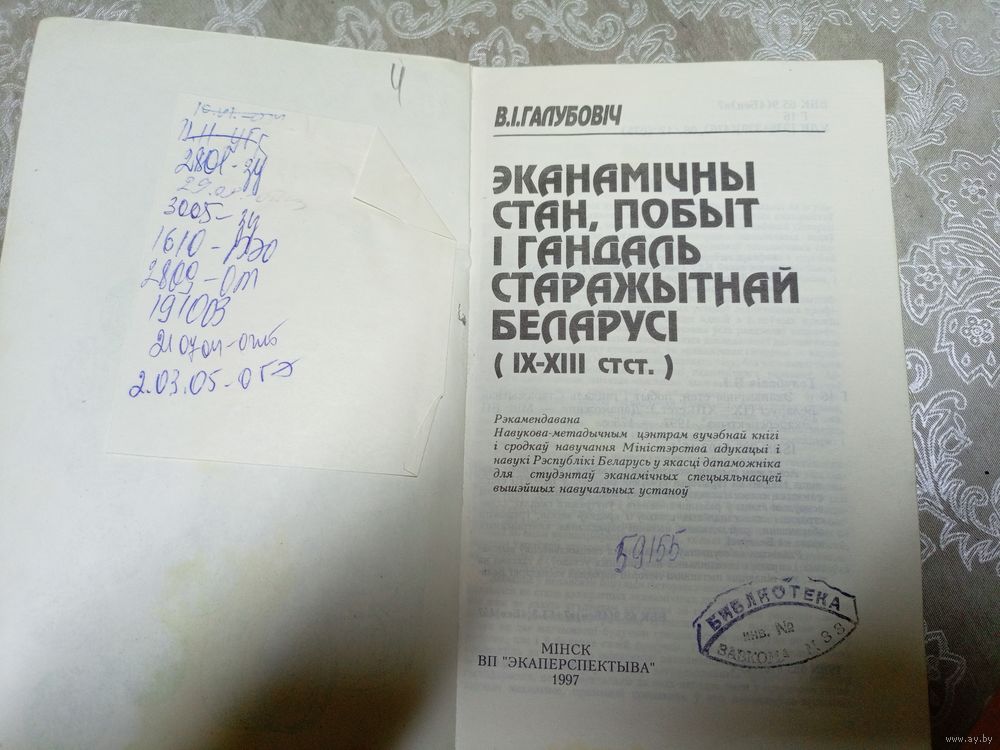 Ч
2801-зу
3005-зу
1610-
2809-от
191003
2.03.05-
В.І.ГАЛУБОВІЧ
ЭКАНАМІЧНЫ
СТАН, ПОБЫТ
І ГАНДАЛЬ
СТАРАЖЫТНАЙ
БЕЛАРУСІ
( IX-XIII стст. )
Рэкамендавана
Навукова-метадычным цэнтрам вучэбнай кнігі
і сродкаў навучання Міністэрства адукацыі і
навукі Рэспублікі Беларусь у якасці дапаможніка
для студэнтаў эканамічных спецыяльнасцей
вышэйшых навучальных устаноў
59155
БИБЛИОТЕКА
инв. №
ЗАВКОМА М З З
МІНСК
ВП "ЭКАПЕРСПЕКТЫВА"
1997
www.ay.by